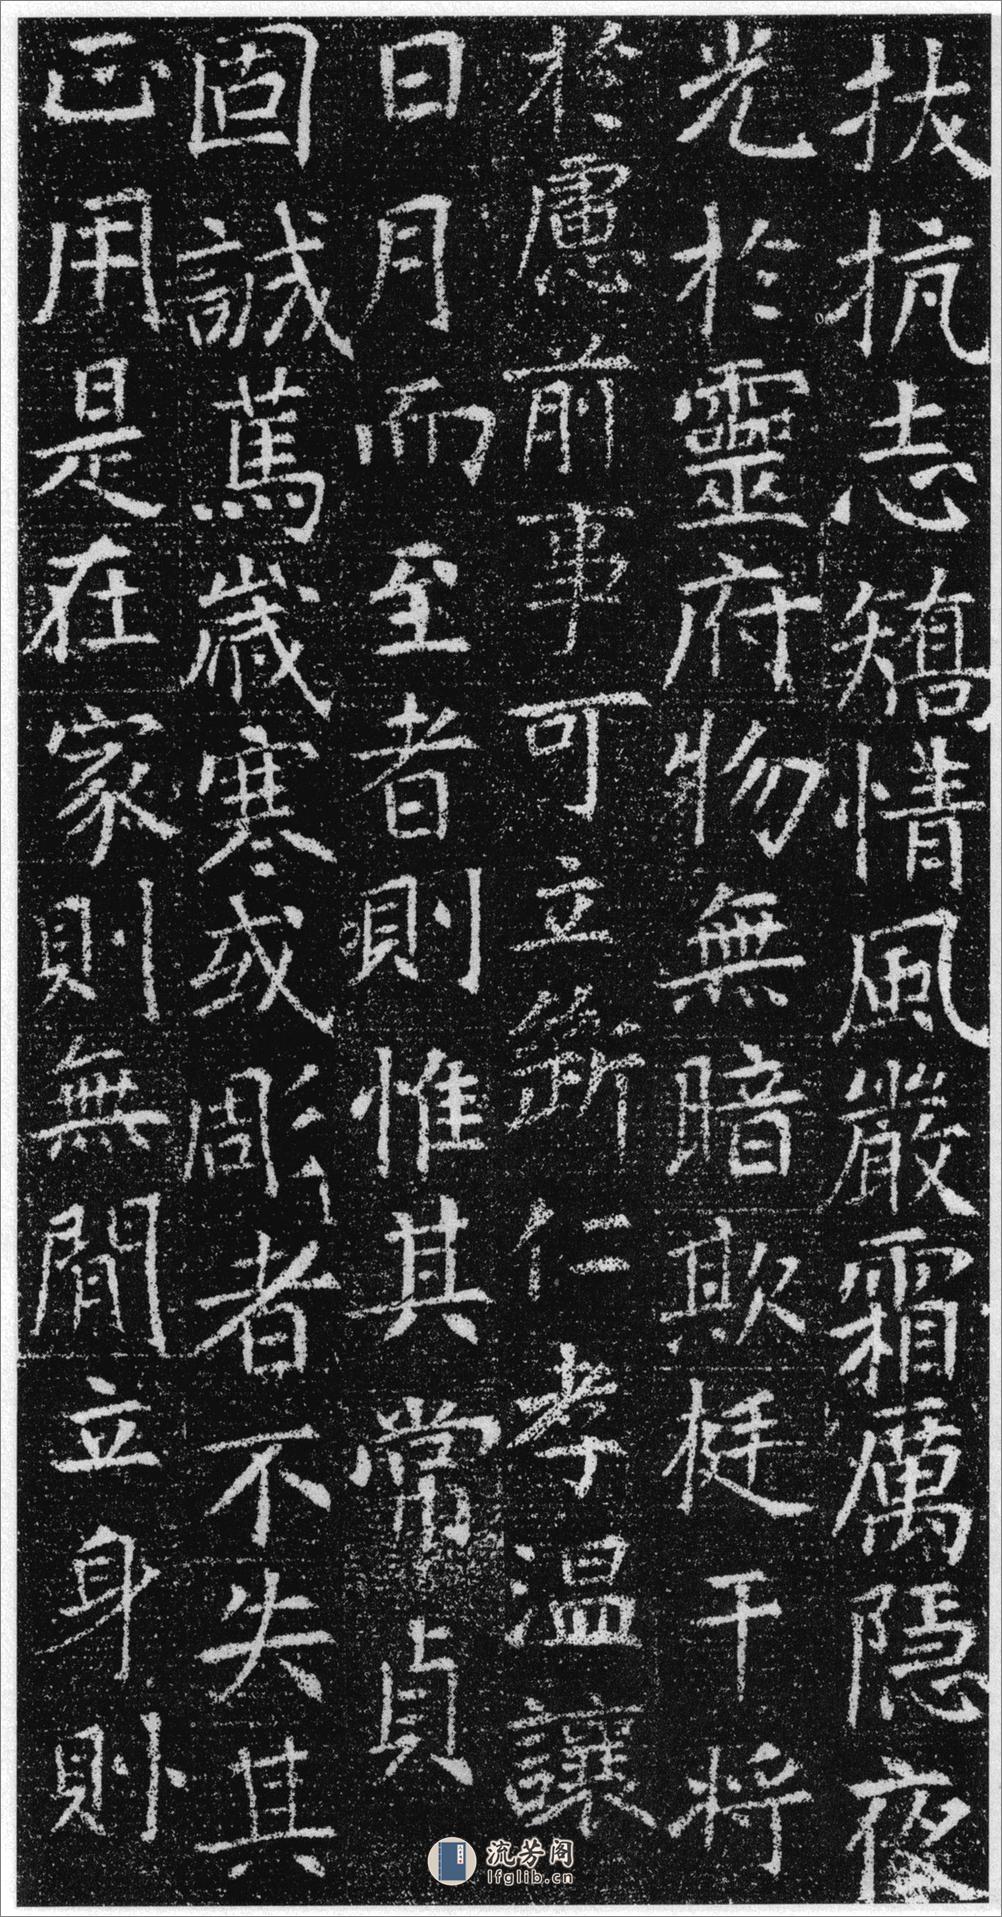 拔抗志矯情風嚴霜厲隱夜
光於靈府物無暗欺挺干將
於慮前事可立斷仁孝温讓
日月而至者則惟其常貞
固誠萬歲寒或彫者不失其
正用是在家則無間立身則
流芳阁
lfglib.cn